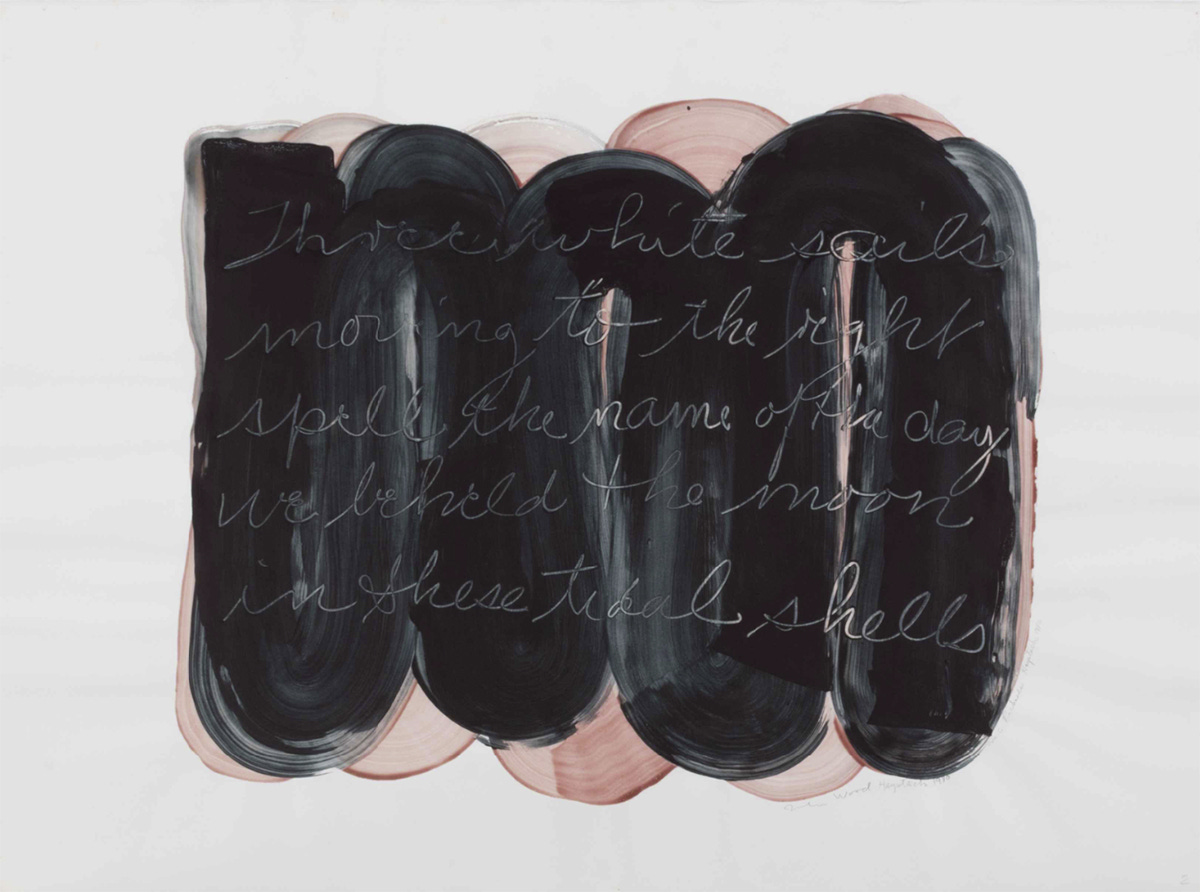 Three white sails
moving to the right
spell the name of the day
we beheld the moon
in these tidal shells
Wood